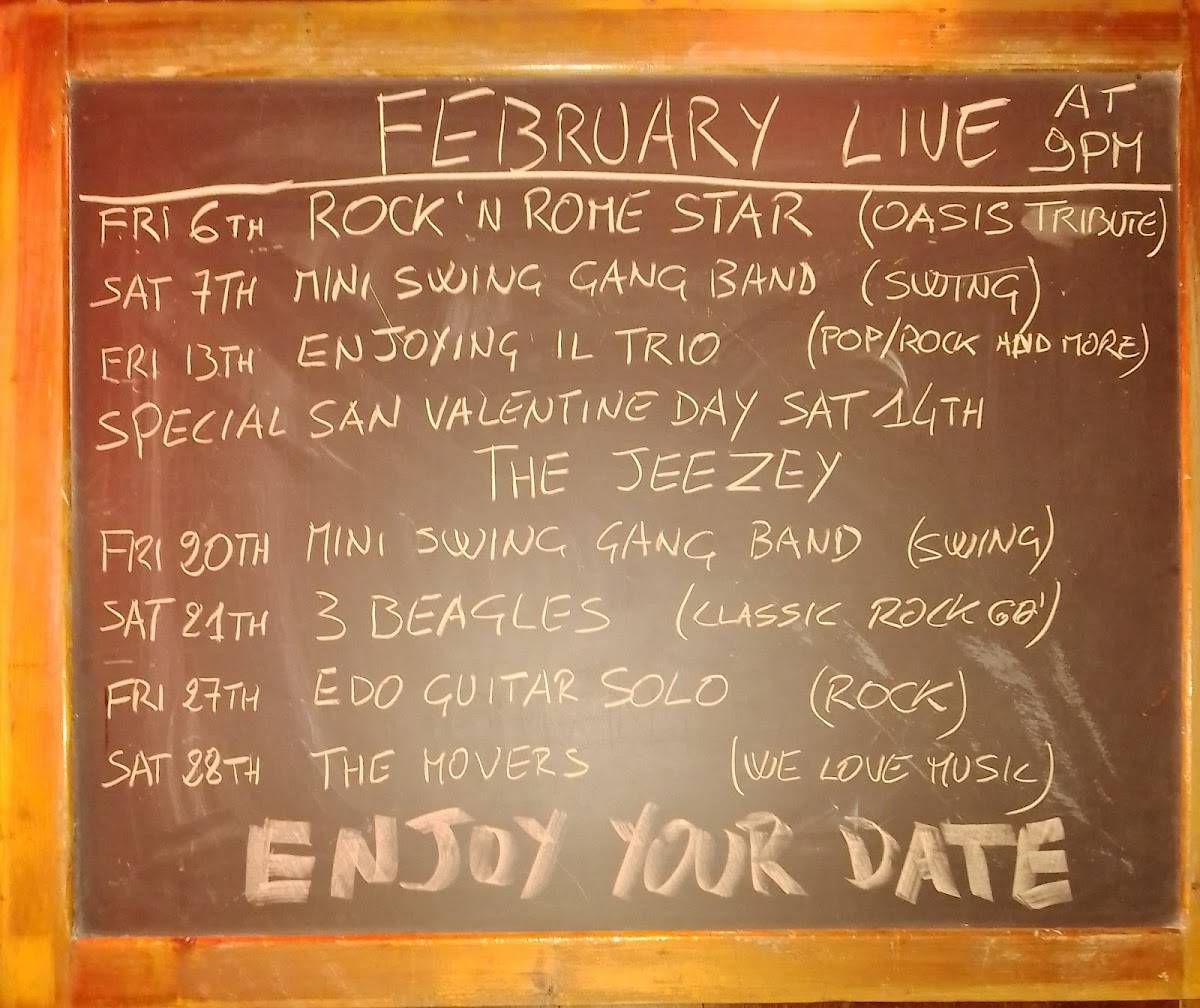 FEBRUARY LIVE AT 9PM
FRI 6TH ROCK'N ROME STAR (OASIS TRIBUTE)
SAT 7TH MINI SWING GANG BAND (SWING)
FRI 13TH ENJOYING IL TRIO (POP/ROCK AND MORE)
SPECIAL SAN VALENTINE DAY SAT 14TH
THE JEEZEY
FRI 20TH MINI SWING GANG BAND (SWING)
SAT 21TH 3 BEAGLES (CLASSIC ROCK 60')
FRI 27TH EDO GUITAR SOLO (ROCK)
SAT 28TH THE MOVERS (WE LOVE MUSIC)
ENJOY YOUR DATE